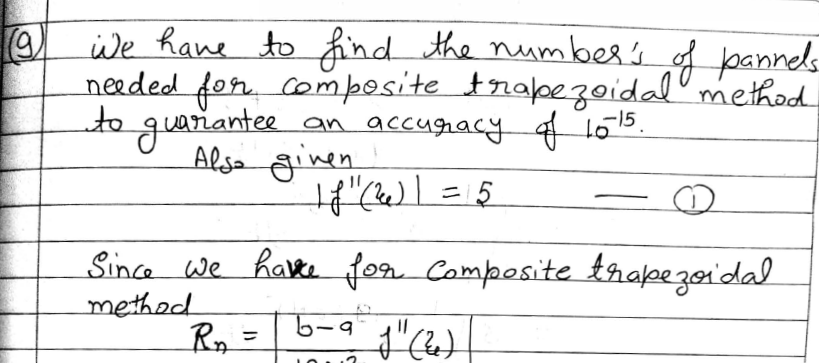 (9) We have to find the number's of pannels
needed for composite trapezoidal method
to guarantee an accuracy of 10⁻¹⁵.
Also given
|f''(ξ)| = 5 — ①
Since we have for composite trapezoidal
method
Rₙ = | b-a f''(ξ) |